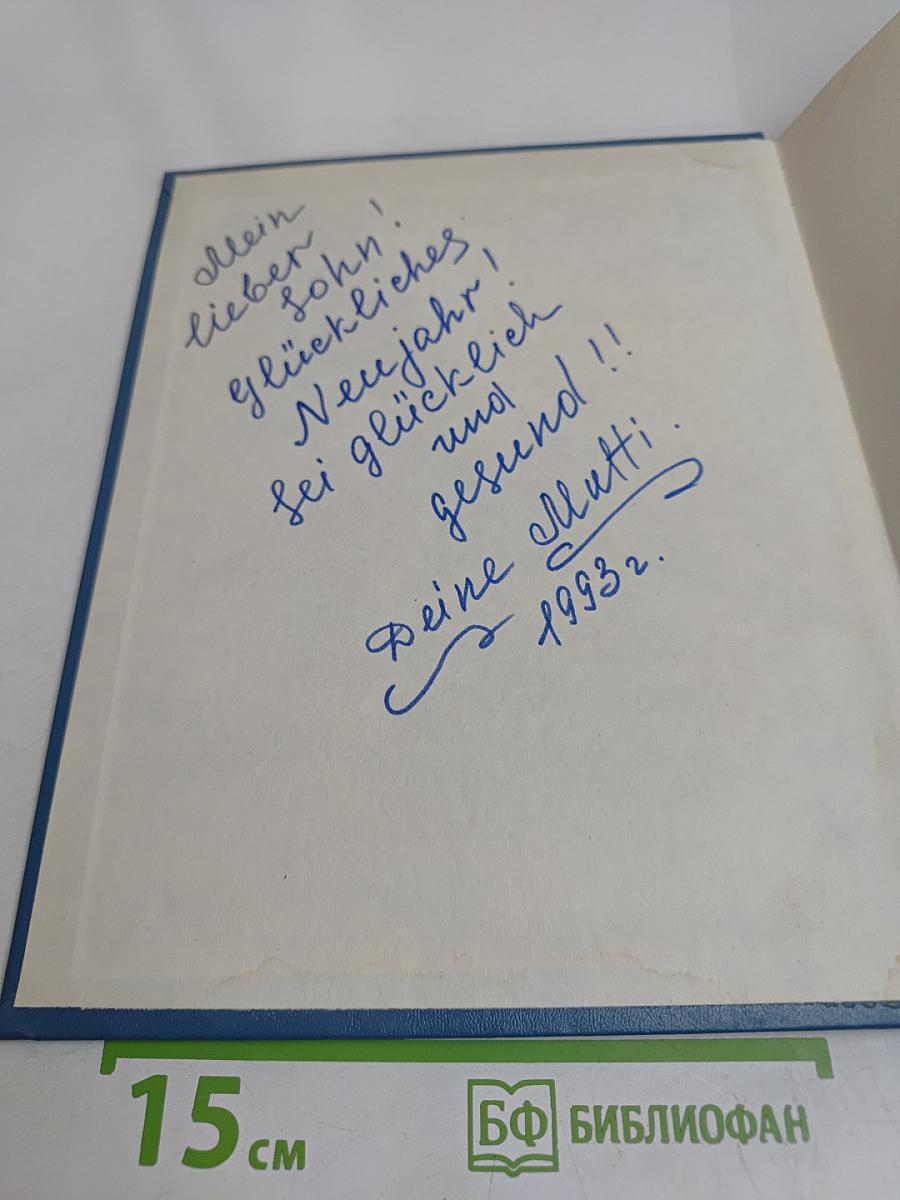 Mein
lieber
sohn!
glückliches
Neujahr!
sei glücklich
und
gesund!!
Deine Mutti.
1993 г.
15 см
БФ БИБЛИОФАН